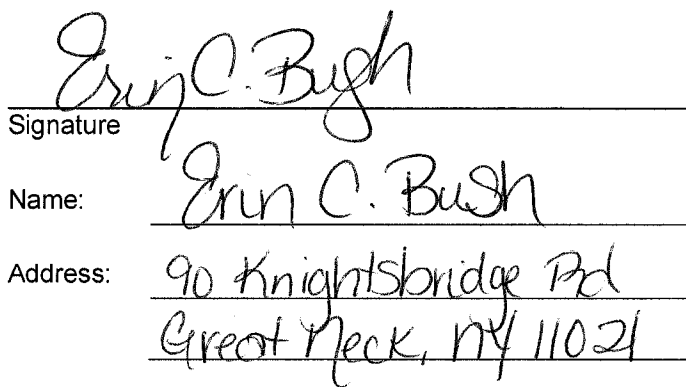 Erin C. Bush
Signature
Name: Erin C. Bush
Address: 90 Knightsbridge Rd
Great Neck, NY 11021